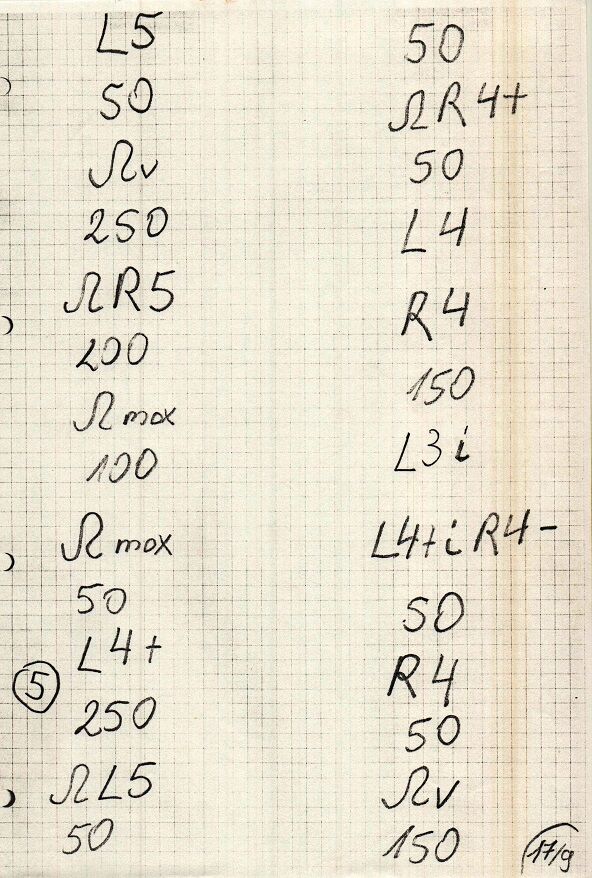 L5
50
Ωv
250
ΩR5
200
Ωmax
100
Ωmax
50
L4+
5
250
ΩL5
50
50
ΩR4+
50
L4
R4
150
L3i
L4+iR4-
50
R4
50
Ωv
150
17/9